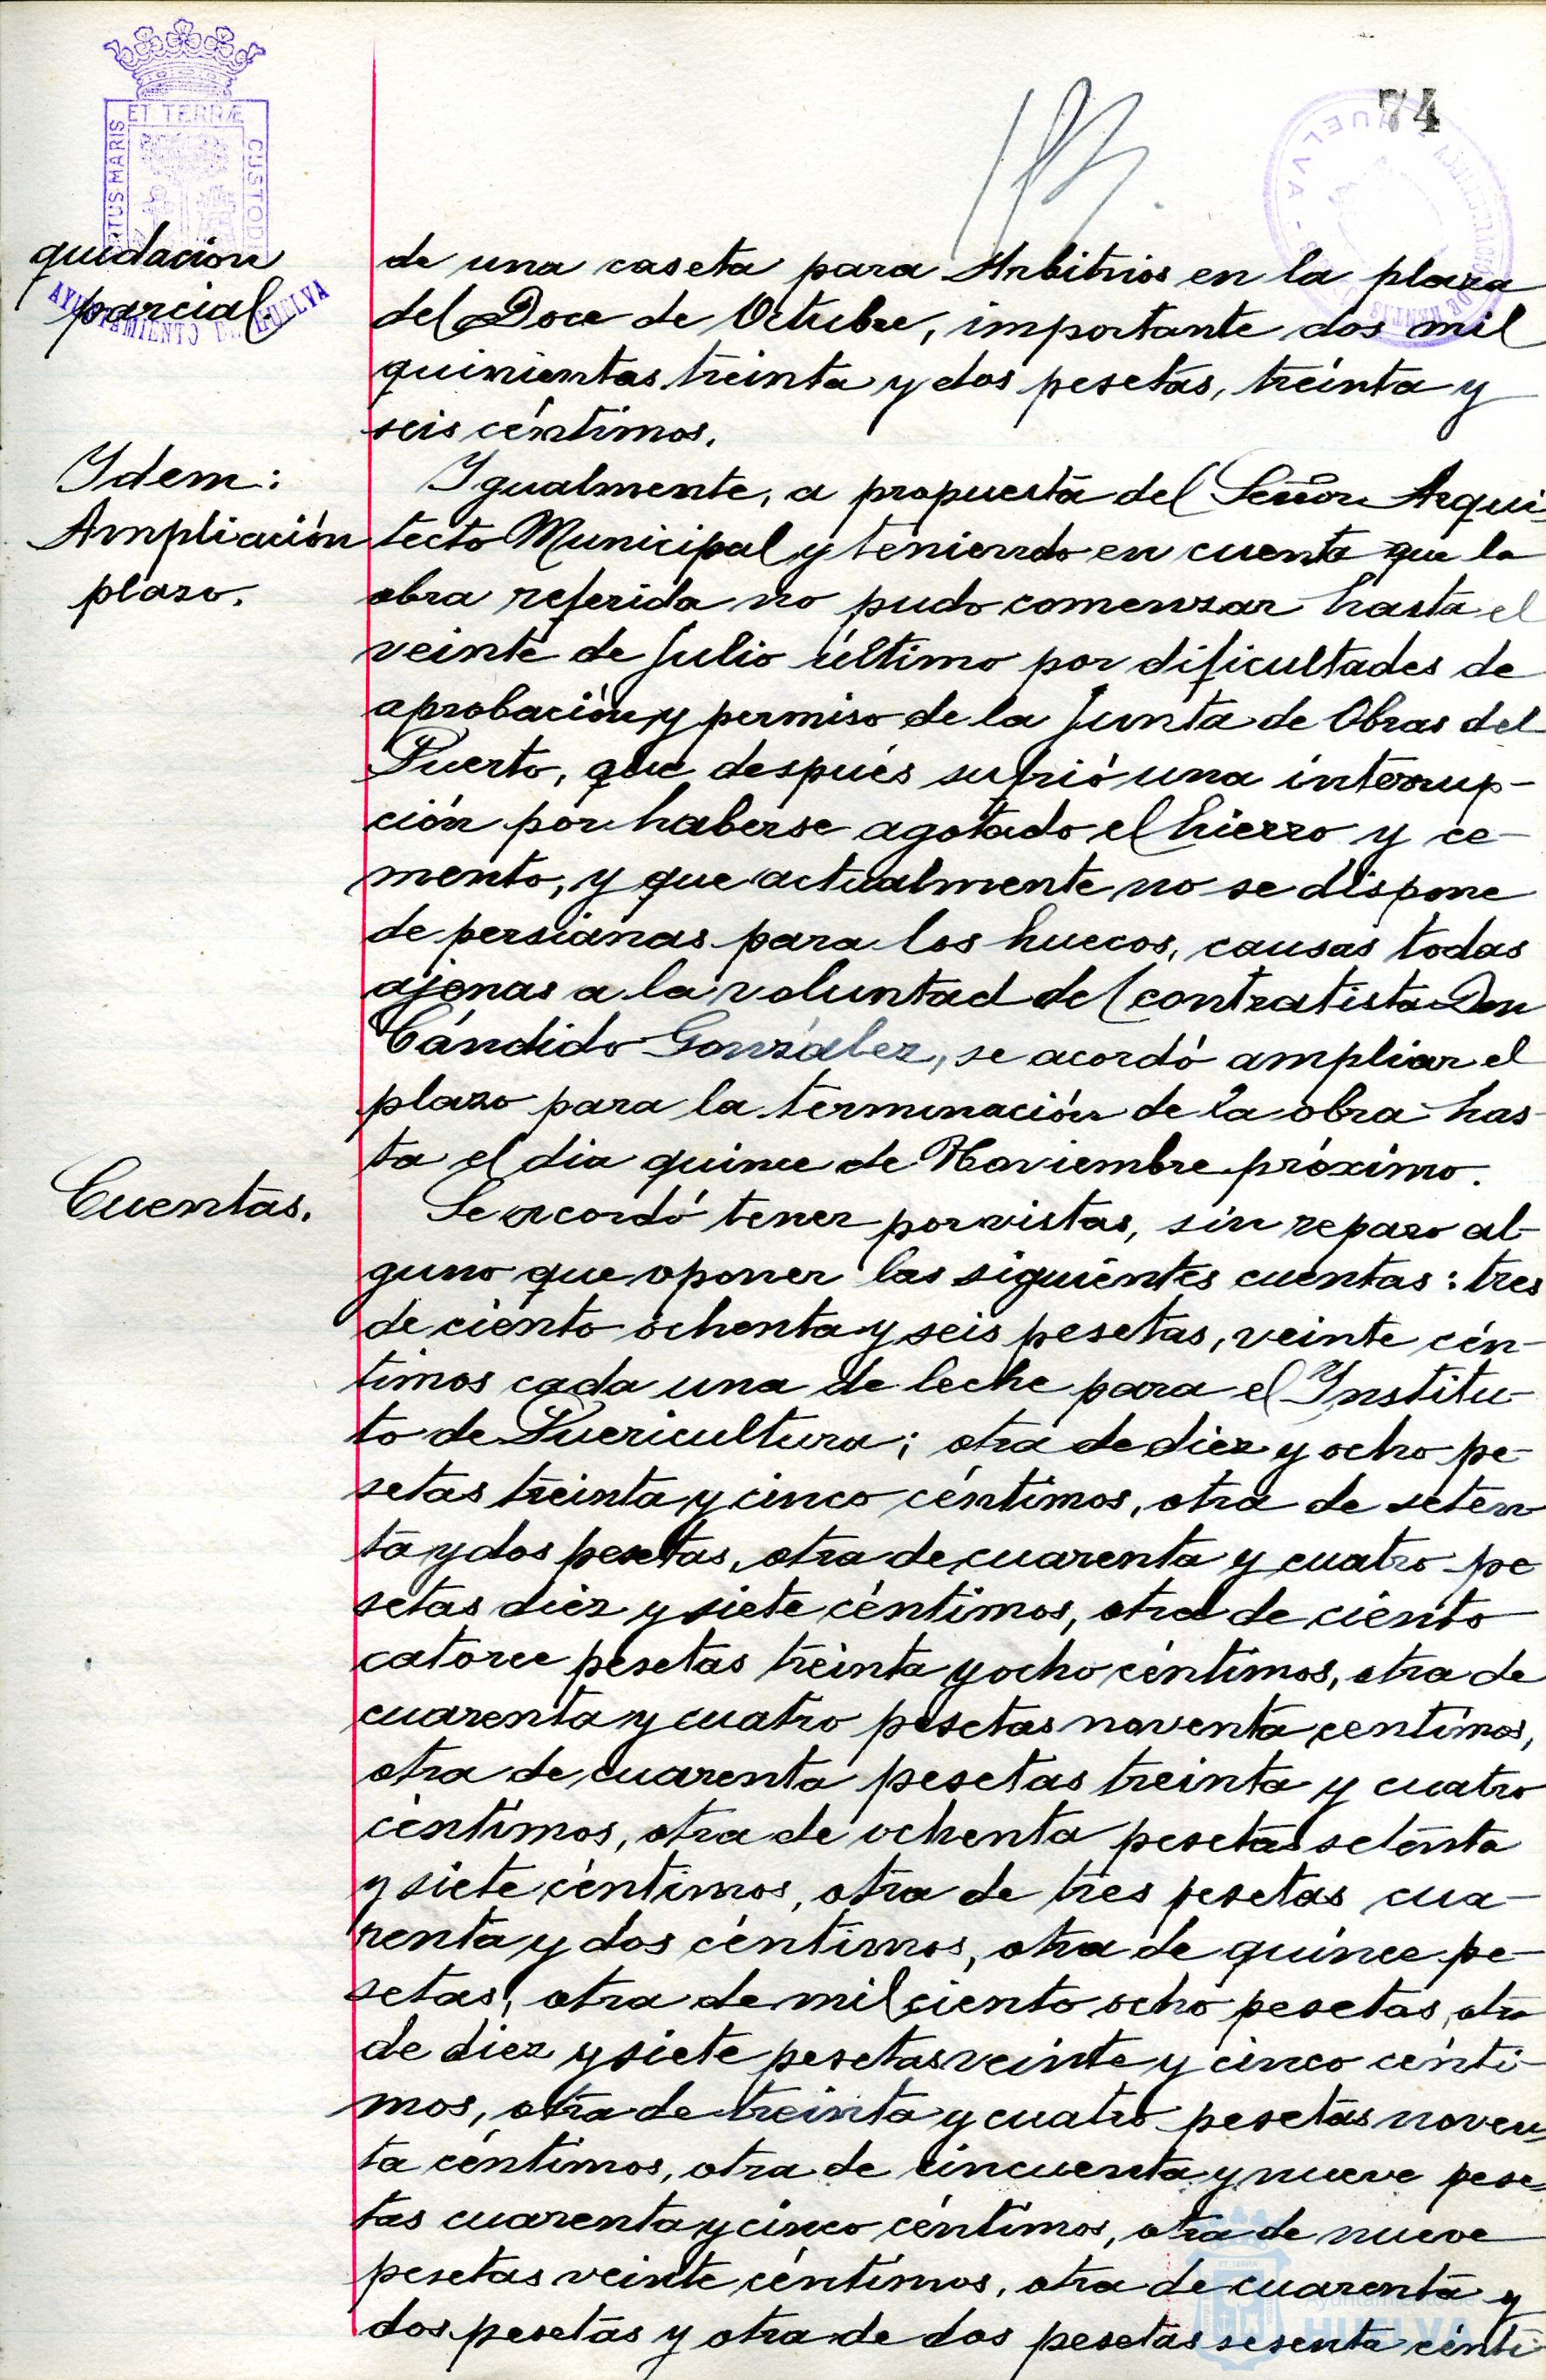 74
ET TERRÆ
PORTUS MARIS
CUSTODIA
AYUNTAMIENTO DE HUELVA
HUELVA
quidacion
parcial.
de una caseta para Arbitrios en la plaza
del Doce de Octubre, importante dos mil
quinientas treinta y dos pesetas, treinta y
seis céntimos.
Idem:
Ampliación
plazo.
Igualmente, a propuesta del Señor Arqui-
tecto Municipal y teniendo en cuenta que la
obra referida no pudo comenzar hasta el
veinte de Julio último por dificultades de
aprobación y permiso de la Junta de Obras del
Puerto, que después sufrió una interrup-
ción por haberse agotado el hierro y ce-
mento, y que actualmente no se dispone
de persianas para los huecos, causas todas
ajenas a la voluntad del contratista Don
Cándido González, se acordó ampliar el
plazo para la terminación de la obra has-
ta el dia quince de Noviembre próximo.
Cuentas.
Se acordó tener por vistas, sin reparo al-
guno que oponer las siguientes cuentas: tres
de ciento ochenta y seis pesetas, veinte cén-
timos cada una de leche para el Institu-
to de Puericultura; otra de diez y ocho pe-
setas treinta y cinco céntimos, otra de seten
ta y dos pesetas, otra de cuarenta y cuatro pe
setas diez y siete céntimos, otra de ciento
catorce pesetas treinta y ocho céntimos, otra de
cuarenta y cuatro pesetas noventa centimos,
otra de cuarenta pesetas treinta y cuatro
céntimos, otra de ochenta pesetas setenta
y siete céntimos, otra de tres pesetas cua-
renta y dos céntimos, otra de quince pe-
setas, otra de mil ciento ocho pesetas, otra
de diez y siete pesetas veinte y cinco cénti-
mos, otra de treinta y cuatro pesetas noven-
ta céntimos, otra de cincuenta y nueve pese-
tas cuarenta y cinco céntimos, otra de nueve
pesetas veinte céntimos, otra de cuarenta y
dos pesetas y otra de dos pesetas sesenta cénti-
Ayuntamiento de
HUELVA